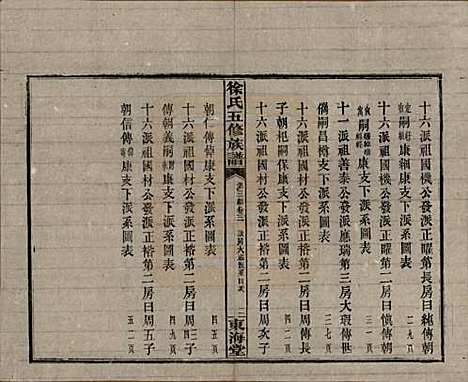 十六派祖國機公發派正曜第長房日純傳朝
康細康支下派系圖表
二九頁
十六派祖國機公發派正曜第二房日慎傳朝
嗣康支下派系圖表
三一頁
十一派祖善泰公發派應瑞第三房大瑕傳世
僞嗣昌樽支下派系圖表
三七頁
十六派祖國材公發派正榕第二房日周傳長
子朝杞嗣保康支下派系圖表
徐氏五修族譜
東海堂
十六派祖國材公發派正榕第二房日周次子
朝仁傳倬康支下派系圖表
四五頁
十六派祖國材公發派正榕第二房日周三子
傳朝義嗣康支下派系圖表
四九頁
十六派祖國材公發派正榕第二房日周五子
朝信傳康支下派系圖表
五一頁